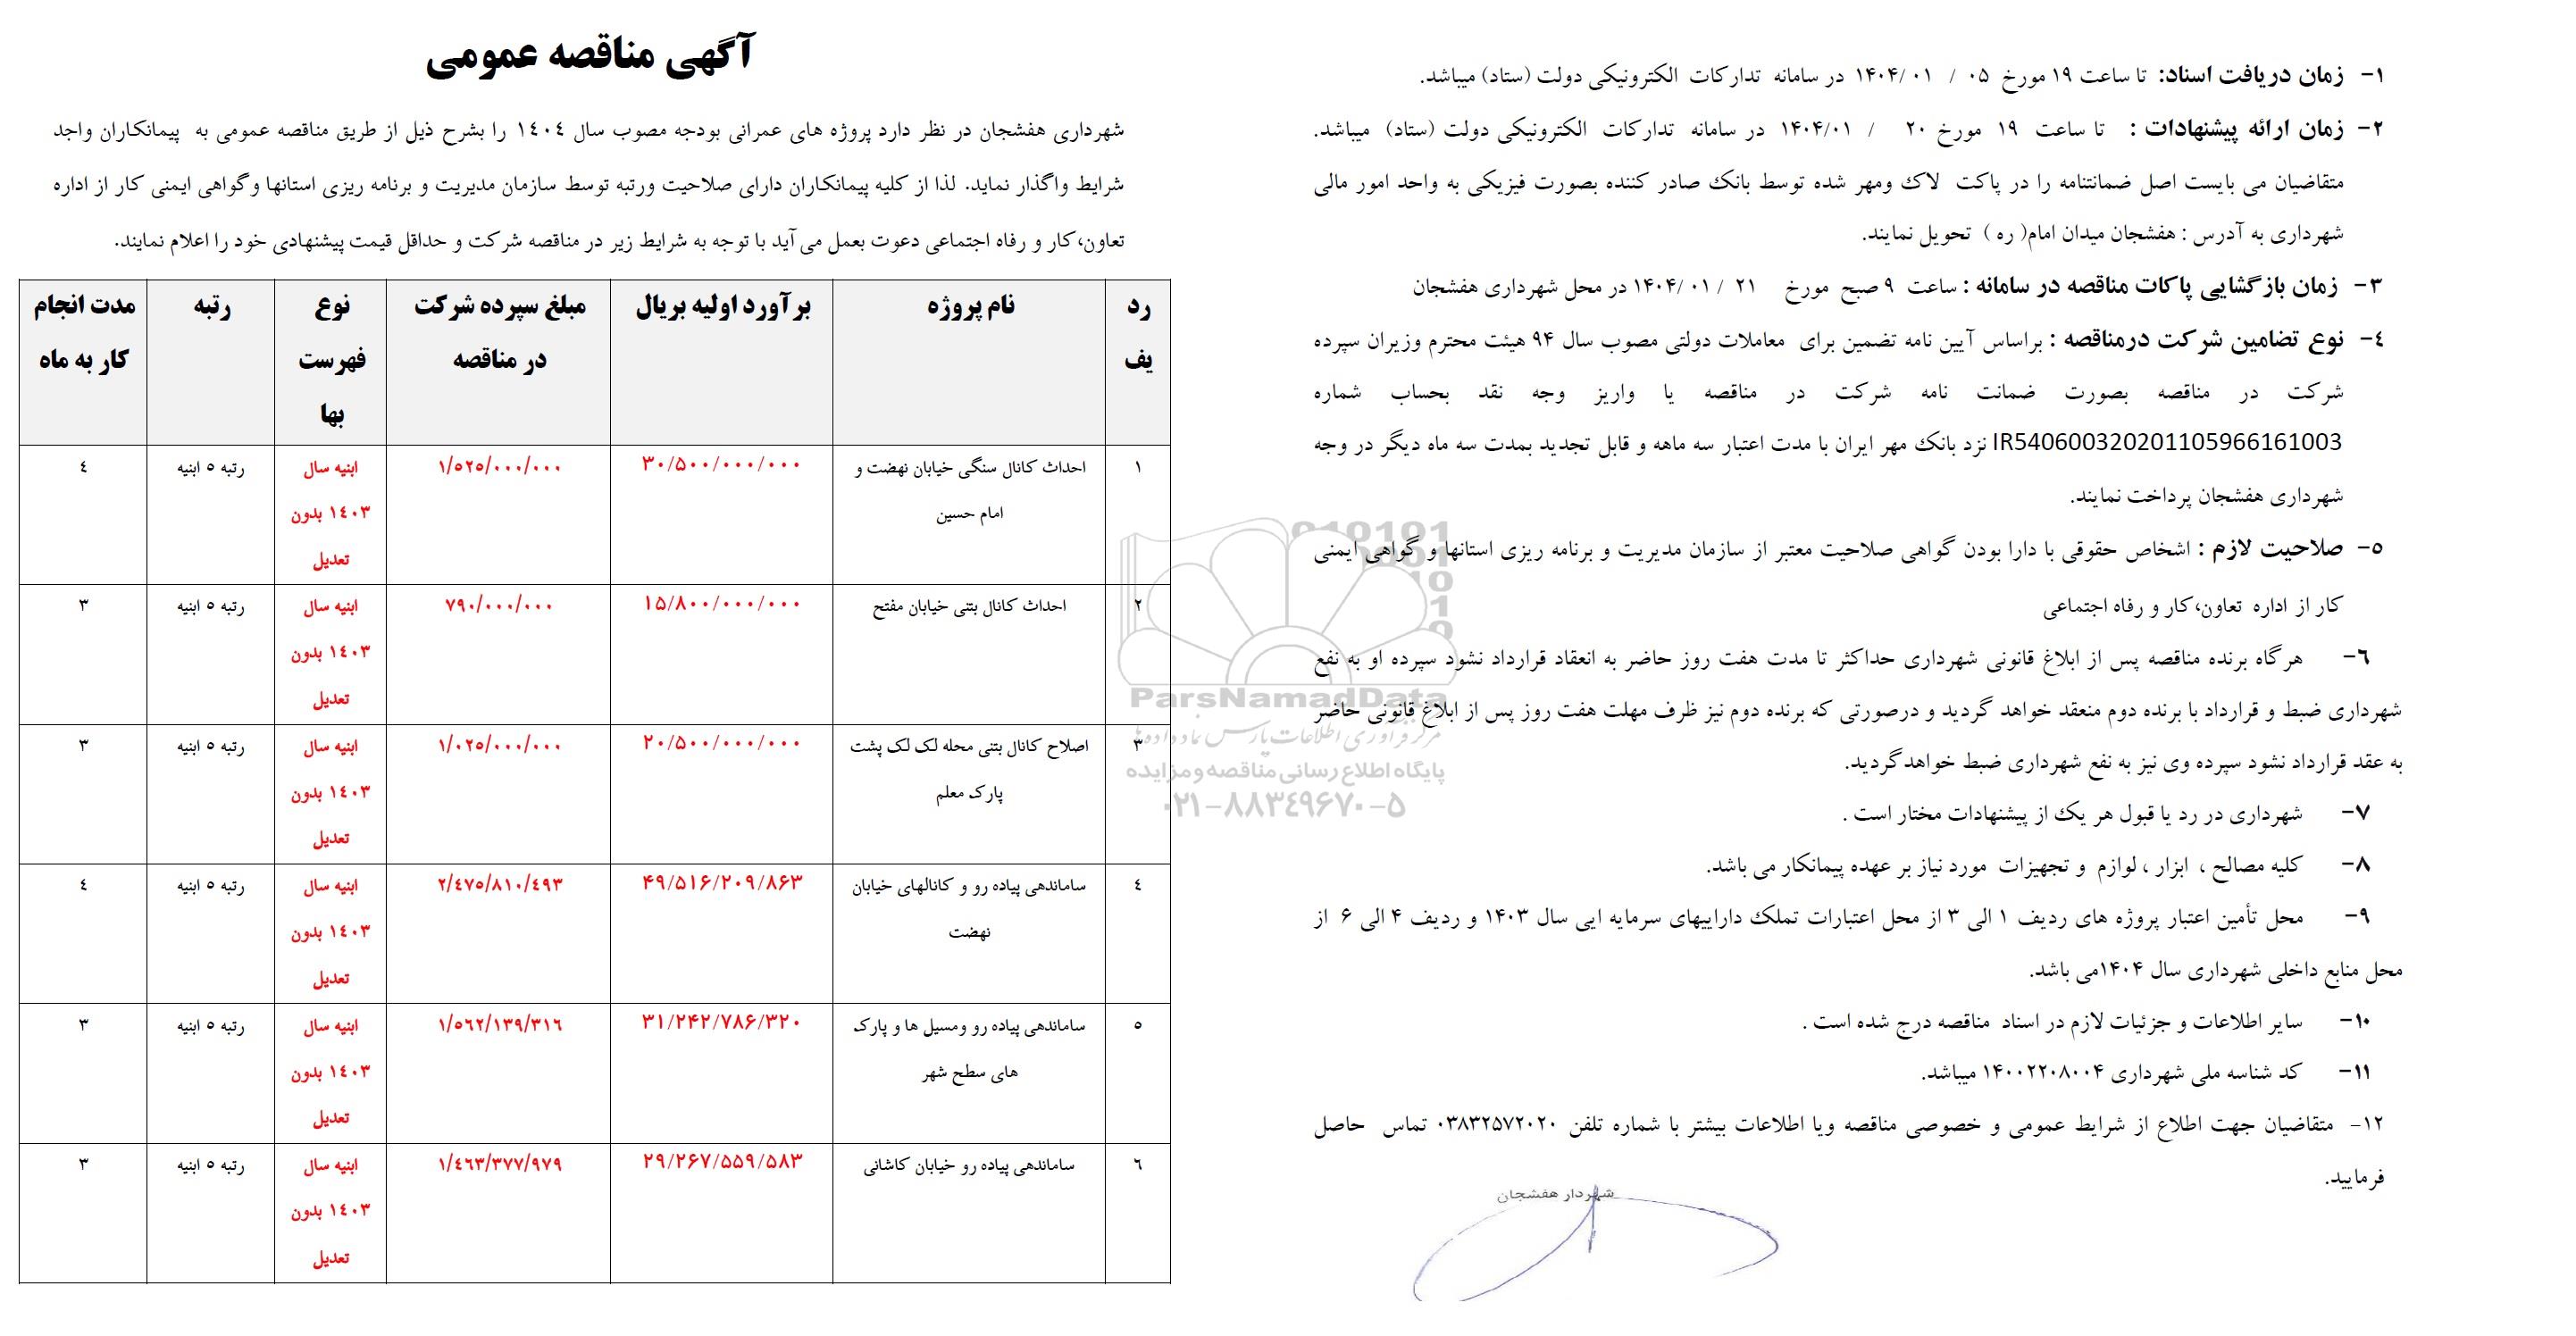 آگهی مناقصه عمومی
شهرداری هفشجان در نظر دارد پروژه های عمرانی بودجه مصوب سال ١٤٠٤ را بشرح ذیل از طریق مناقصه عمومی به پیمانکاران واجد
شرایط واگذار نماید. لذا از کلیه پیمانکاران دارای صلاحیت ورتبه توسط سازمان مدیریت و برنامه ریزی استانها وگواهی ایمنی کار از اداره
تعاون،کار و رفاه اجتماعی دعوت بعمل می آید با توجه به شرایط زیر در مناقصه شرکت و حداقل قیمت پیشنهادی خود را اعلام نمایند.
رد یف	نام پروژه	برآورد اولیه بریال	مبلغ سپرده شرکت در مناقصه	نوع فهرست بها	رتبه	مدت انجام کار به ماه
١	احداث کانال سنگی خیابان نهضت و امام حسین	۳۰/۵۰۰/۰۰۰/۰۰۰	١/٥٢٥/٠٠٠/٠٠٠	ابنیه سال ١٤٠٣ بدون تعدیل	رتبه ٥ ابنیه	٤
٢	احداث کانال بتنی خیابان مفتح	۱۵/۸۰۰/۰۰۰/۰۰۰	٧٩٠/٠٠٠/٠٠٠	ابنیه سال ١٤٠٣ بدون تعدیل	رتبه ٥ ابنیه	٣
٣	اصلاح کانال بتنی محله لک لک پشت پارک معلم	۲۰/۵۰۰/۰۰۰/۰۰۰	١/٠٢٥/٠٠٠/٠٠٠	ابنیه سال ١٤٠٣ بدون تعدیل	رتبه ٥ ابنیه	٣
٤	ساماندهی پیاده رو و کانالهای خیابان نهضت	۴۹/۵۱۶/۲۰۹/۸۶۳	٢/٤٧٥/٨١٠/٤٩٣	ابنیه سال ١٤٠٣ بدون تعدیل	رتبه ٥ ابنیه	٤
٥	ساماندهی پیاده رو ومسیل ها و پارک های سطح شهر	۳۱/۲۴۲/۷۸۶/۳۲۰	١/٥٦٢/١٣٩/٣١٦	ابنیه سال ١٤٠٣ بدون تعدیل	رتبه ٥ ابنیه	٣
٦	ساماندهی پیاده رو خیابان کاشانی	۲۹/۲۶۷/۵۵۹/۵۸۳	١/٤٦٣/٣٧٧/٩٧٩	ابنیه سال ١٤٠٣ بدون تعدیل	رتبه ٥ ابنیه	٣
١- زمان دریافت اسناد: تا ساعت ۱۹ مورخ ۰۵ / ۰۱ /۱۴۰۴ در سامانه تدارکات الکترونیکی دولت (ستاد) میباشد.
٢- زمان ارائه پیشنهادات : تا ساعت ۱۹ مورخ ۲۰ / ۱۴۰۴/۰۱ در سامانه تدارکات الکترونیکی دولت (ستاد) میباشد.
متقاضیان می بایست اصل ضمانتنامه را در پاکت لاک ومهر شده توسط بانک صادر کننده بصورت فیزیکی به واحد امور مالی
شهرداری به آدرس : هفشجان میدان امام( ره ) تحویل نمایند.
٣- زمان بازگشایی پاکات مناقصه در سامانه : ساعت ۹ صبح مورخ ۲۱ / ۰۱ /۱۴۰۴ در محل شهرداری هفشجان
٤- نوع تضامین شرکت درمناقصه : براساس آیین نامه تضمین برای معاملات دولتی مصوب سال ۹۴ هیئت محترم وزیران سپرده
شرکت در مناقصه بصورت ضمانت نامه شرکت در مناقصه یا واریز وجه نقد بحساب شماره
IR540600320201105966161003 نزد بانک مهر ایران با مدت اعتبار سه ماهه و قابل تجدید بمدت سه ماه دیگر در وجه
شهرداری هفشجان پرداخت نمایند.
٥- صلاحیت لازم : اشخاص حقوقی با دارا بودن گواهی صلاحیت معتبر از سازمان مدیریت و برنامه ریزی استانها و گواهی ایمنی
کار از اداره تعاون،کار و رفاه اجتماعی
٦- هرگاه برنده مناقصه پس از ابلاغ قانونی شهرداری حداکثر تا مدت هفت روز حاضر به انعقاد قرارداد نشود سپرده او به نفع
شهرداری ضبط و قرارداد با برنده دوم منعقد خواهد گردید و درصورتی که برنده دوم نیز ظرف مهلت هفت روز پس از ابلاغ قانونی حاضر
به عقد قرارداد نشود سپرده وی نیز به نفع شهرداری ضبط خواهدگردید.
٧- شهرداری در رد یا قبول هر یک از پیشنهادات مختار است .
٨- کلیه مصالح ، ابزار ، لوازم و تجهیزات مورد نیاز بر عهده پیمانکار می باشد.
٩- محل تأمین اعتبار پروژه های ردیف ۱ الی ۳ از محل اعتبارات تملک داراییهای سرمایه ایی سال ۱۴۰۳ و ردیف ۴ الی ۶ از
محل منابع داخلی شهرداری سال ۱۴۰۴می باشد.
١٠- سایر اطلاعات و جزئیات لازم در اسناد مناقصه درج شده است .
١١- کد شناسه ملی شهرداری ۱۴۰۰۲۲۰۸۰۰۴ میباشد.
١٢- متقاضیان جهت اطلاع از شرایط عمومی و خصوصی مناقصه ویا اطلاعات بیشتر با شماره تلفن ۰۳۸۳۲۵۷۲۰۲۰ تماس حاصل
فرمایید.
شهردار هفشجان
ParsNamadData
مرکز فرآوری اطلاعات پارس نماد داده ها
پایگاه اطلاع رسانی مناقصه و مزایده
۰۲۱-۸۸۳۴۹۶۷۰-۵